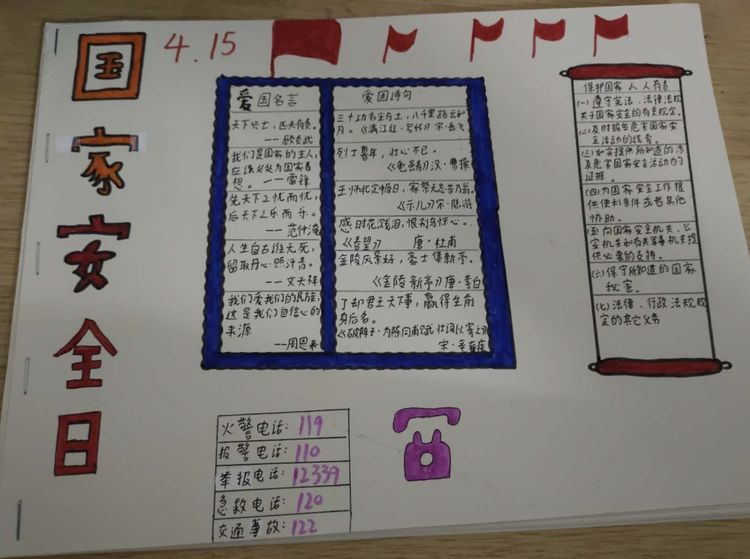 国家安全日
4.15
爱国名言
天下兴亡,匹夫有责。
——顾炎武
我们是国家的主人,
应该处处为国家着
想。——雷锋
先天下之忧而忧,
后天下之乐而乐。
——范仲淹
人生自古谁无死,
留取丹心照汗青。
——文天祥
我们爱我们的民族,
这是我们自信心的
来源
——周恩来
爱国诗句
三十功名尘与土,八千里路云和
月。《满江红·写怀》宋·岳飞
烈士暮年,壮心不已。
《龟虽寿》汉·曹操
王师北定中原日,家祭无忘告乃翁。
《示儿》宋·陆游
感时花溅泪,恨别鸟惊心。
《春望》 唐·杜甫
金陵风景好,豪士集新亭。
《金陵新亭》唐·李白
了却君王天下事,赢得生前
身后名。
《破阵子·为陈同甫赋壮词以寄之》
宋·辛弃疾
保护国家 人人有责
(一)遵守宪法、法律法规
关于国家安全的有关规定。
(二)及时报告危害国家安
全活动的线索。
(三)如实提供所知道的涉
及危害国家安全活动的
证据。
(四)为国家安全工作提
供便利条件或者其他
协助。
(五)向国家安全机关、公
安机关和有关军事机关提
供必要的支持。
(六)保守所知道的国家
秘密。
(七)法律、行政法规规
定的其它义务
火警电话:119
报警电话:110
举报电话:12339
急救电话:120
交通事故:122